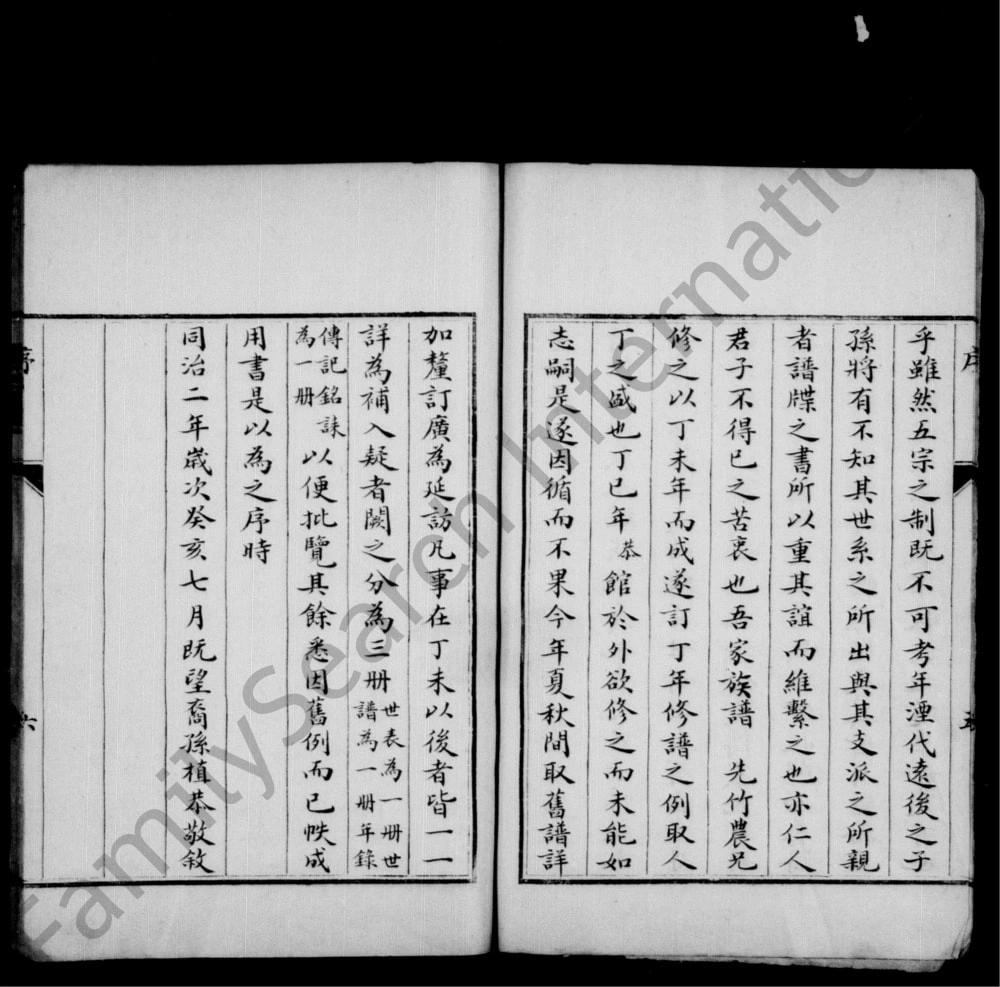 乎雖然五宗之制既不可考年湮代遠後之子
孫將有不知其世系之所出與其支派之所親
者譜牒之書所以重其誼而維繫之也亦仁人
君子不得已之苦衷也吾家族譜 先竹農兄
修之以丁未年而成遂訂丁年修譜之例取人
丁之盛也丁巳年恭館於外欲修之而未能如
志嗣是遂因循而不果今年夏秋間取舊譜詳
加釐訂廣為延訪凡事在丁未以後者皆一一
詳為補入疑者闕之分為三册世表為一册世譜為一册年錄
傳記銘誄為一册以便批覽其餘悉因舊例而已帙成
用書是以為之序時
同治二年歲次癸亥七月既望裔孫植恭敬敘
序
六
FamilySearch International